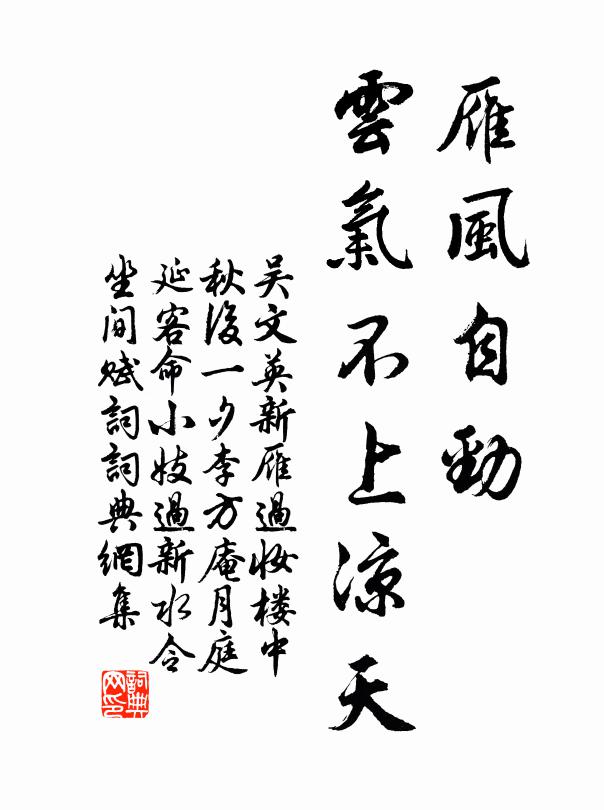 雁風自勁
雲氣不上涼天
吴文英新雁過妝楼中
秋後一夕李方庵月庭
延客命小妓過新水令
坐间赋詞詞典網集
詞典网印